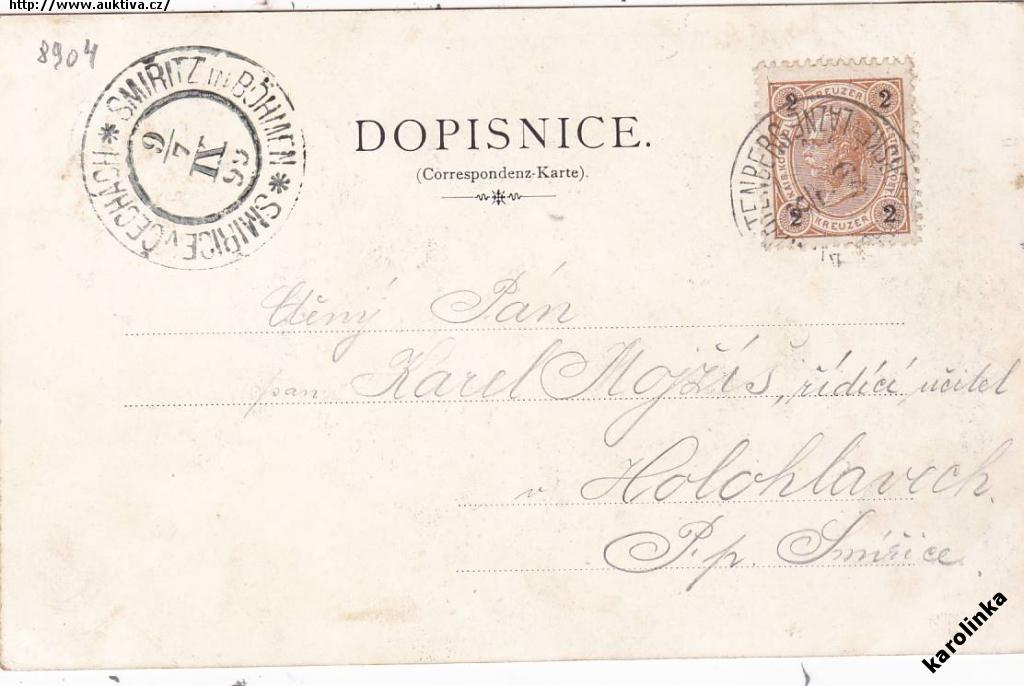 http://www.auktiva.cz/
8904
* SMIŘITZ IN BÖHMEN * SMIŘICE V ČECHÁCH
9/7
IX
99
DOPISNICE.
(Correspondenz-Karte).
2 KREUZER 2
2 KREUZER 2
LÁZNĚ
Ctěný Pán
pan Karel Mojžíš, řídící učitel
v Holohlavech.
P. p. Smiřice.
karolinka